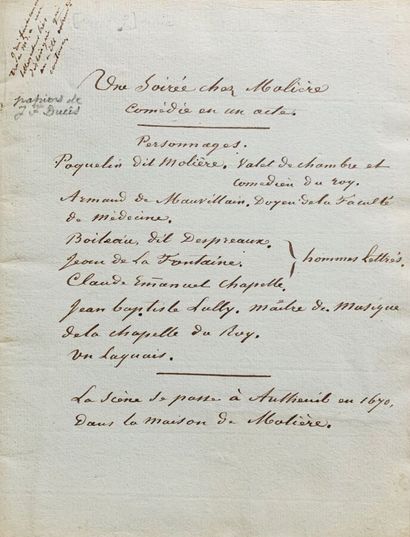 papiers de
J. F. Ducis
Une Soirée chez Molière
Comédie en un acte.
Personnages.
Poquelin dit Molière. Valet de chambre et
comédien du roy.
Armand de Mauvillain. Doyen de la Faculté
de médecine.
Boileau, dit Despreaux.
Jean de La Fontaine.
hommes Lettrés.
Claude Emmanuel Chapelle.
Jean baptiste Lully. Maître de Musique
de la chapelle du Roy.
Un Laquais.
La Scène se passe à Autheuil en 1670,
dans la maison de Molière.